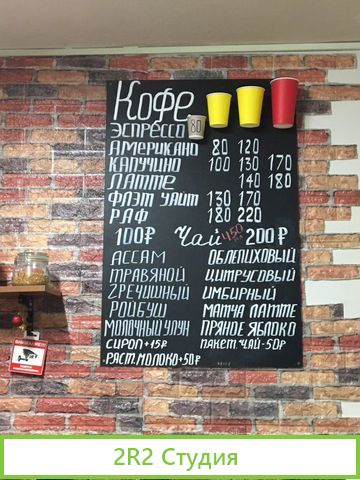 Кофе
ЭСПРЕССО 80
АМЕРИКАНО 80 120
КАПУЧИНО 100 130 170
ЛАТТЕ 140 180
ФЛЭТ УАЙТ 130 170
РАФ 180 220
100₽ Чай 450 200₽
АССАМ ОБЛЕПИХОВЫЙ
ТРАВЯНОЙ ЦИТРУСОВЫЙ
ГРЕЧИШНЫЙ ИМБИРНЫЙ
РОЙБУШ МАТЧА ЛАТТЕ
МОЛОЧНЫЙ УЛУН ПРЯНОЕ ЯБЛОКО
СИРОП +15₽ ПАКЕТ. ЧАЙ-50₽
РАСТ. МОЛОКО +50₽
2R2 Студия